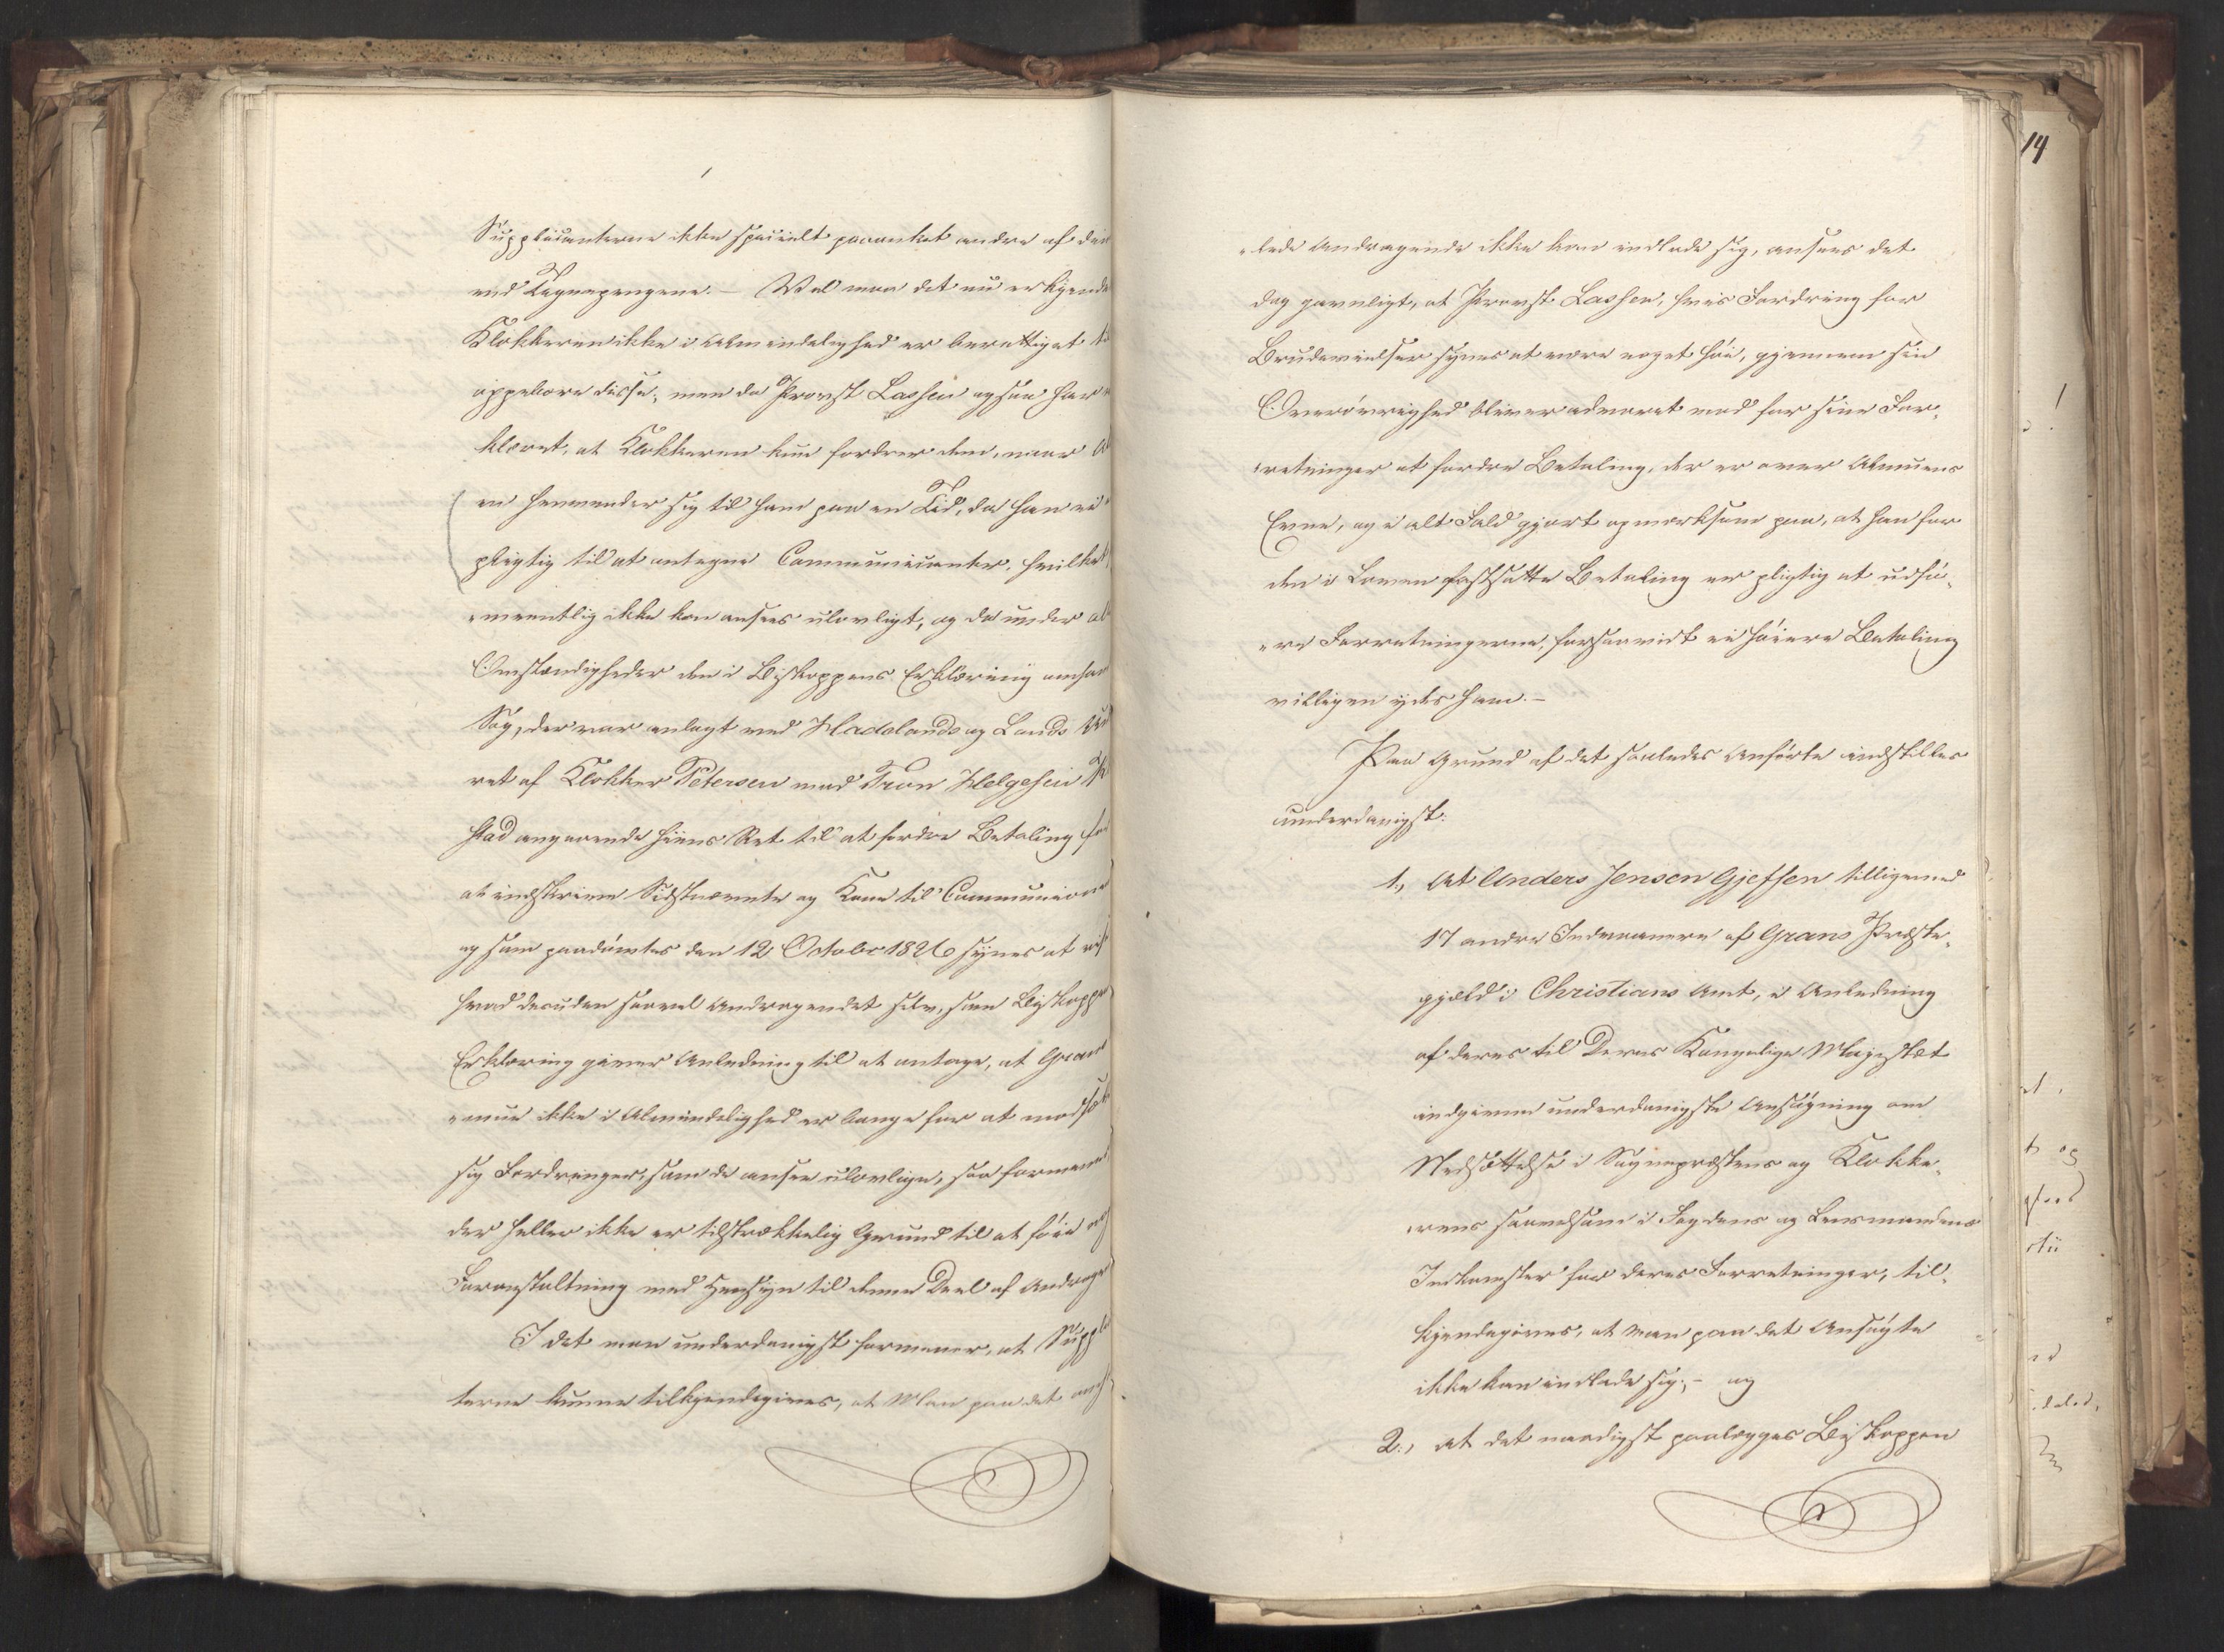 Supplicanterne ikke specielt paaanket andre af den
end Tegnepengene. – Vel maa det nu erkjende
Klokkeren ikke i Almindelighed er berettiget til
oppebære disse; men da Provst Lassen ogsaa har
klæret, at Klokkeren kun fordrer dem, naar
en henvender sig til ham paa en Tid, da han ei
pligtig til at antegne Communicanter, hvilket
mentlig ikke kan ansees ulovligt, og da under al
Omstændigheder den i Biskoppens Erklæring omhan
Sag, der var anlagt ved Hadelands og Lands
ret af Klokker Petersen mod Tron Helgesen
stad angaaende hiins Ret til at fordre Betaling for
at indskrive Sidstnævnte og Kone til Communion
og som paadømtes den 12 Octobr 1826 synes at vise
hvad desuden saavel Andragendet selv, som Biskoppe
Erklæring giver Anledning til at antage, at Grans
muen ikke i Almindelighed er bange for at modsætte
sig Fordringer, som de ansee ulovlige, saa formenes
der heller ikke er tilstrækkelig Grund til at føie no
Foranstaltning med Hensyn til denne Deel af Andrage
I det man underdanigst formener, at Suppli
terne kunne tilkjendegives, at Man paa det
14
lede Andragende ikke kan indlade sig, ansees det
dog gavnligt, at Provst Lassen, hvis Fordring for
Brudevielser synes at være noget høi, gjennem sin
Overøvrighed bliver advaret mod for sine For-
retninger at fordre Betaling, der er over Almuens
Evne, og i alt Fald gjort opmærksom paa, at han for
den i Loven fastsatte Betaling er pligtig at udfø-
re Forretningerne, forsaavidt ei høiere Betaling
villigen ydes ham. –
Paa Grund af det saaledes Anførte indstilles
underdanigst:
1., At Anders Jensen Gjefsen tilligemed
17 andre Indvaanere af Grans Præste-
gjæld i Christians Amt, i Anledning
af deres til Deres Kongelige Majestæt
indgivne underdanigste Ansøgning om
Nedsættelse i Sognepræstens og Klokke-
rens saavelsom i Fogdens og Lensmandens
Indkomster for deres Forretninger, til-
kjendegives, at man paa det Ansøgte
ikke kan indlade sig; – og
2., at det naadigst paalægges Biskoppen